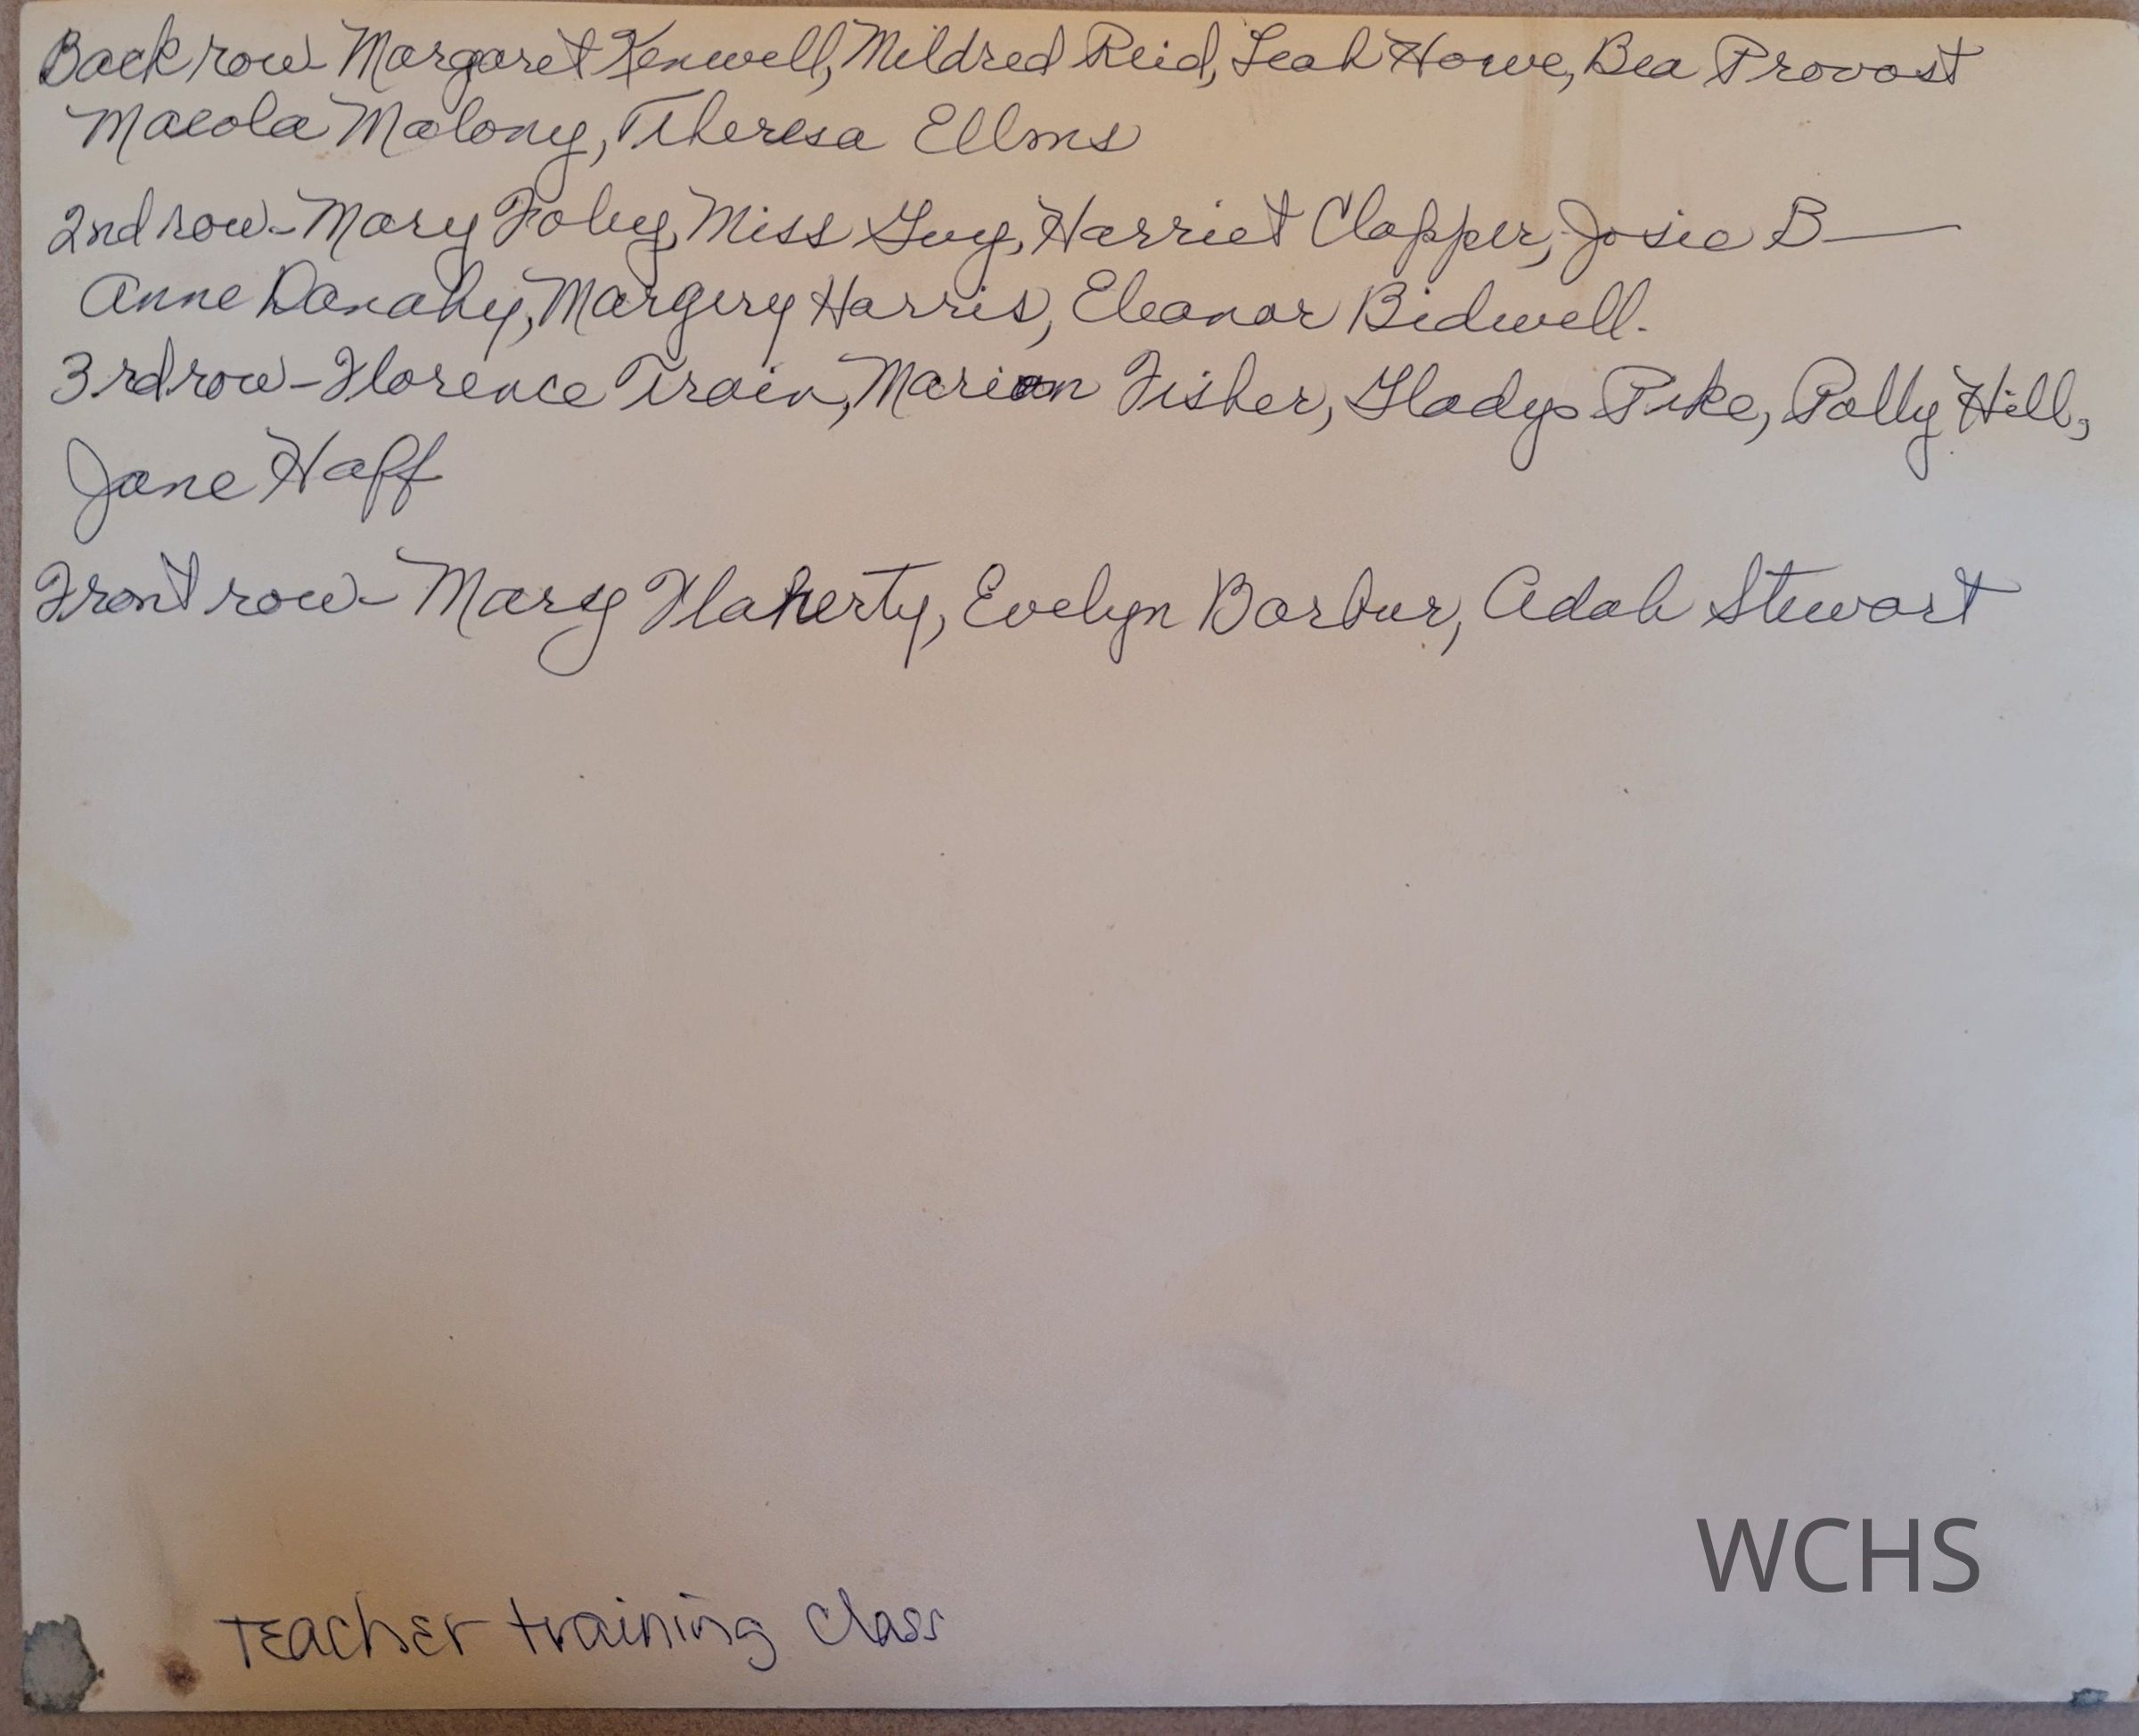 Back row - Margaret Kenwell, Mildred Reid, Leah Howe, Bea Provost
Maeola Malony, Theresa Ellms
2nd row - Mary Foley, Miss Guy, Harriet Clapper, Josie B—
Anne Danahy, Margery Harris, Eleanor Bidwell.
3rd row - Florence Train, Marion Fisher, Gladys Pike, Polly Hill,
Jane Haff
Front row - Mary Flaherty, Evelyn Barbur, Adah Stewart
WCHS
Teacher training class